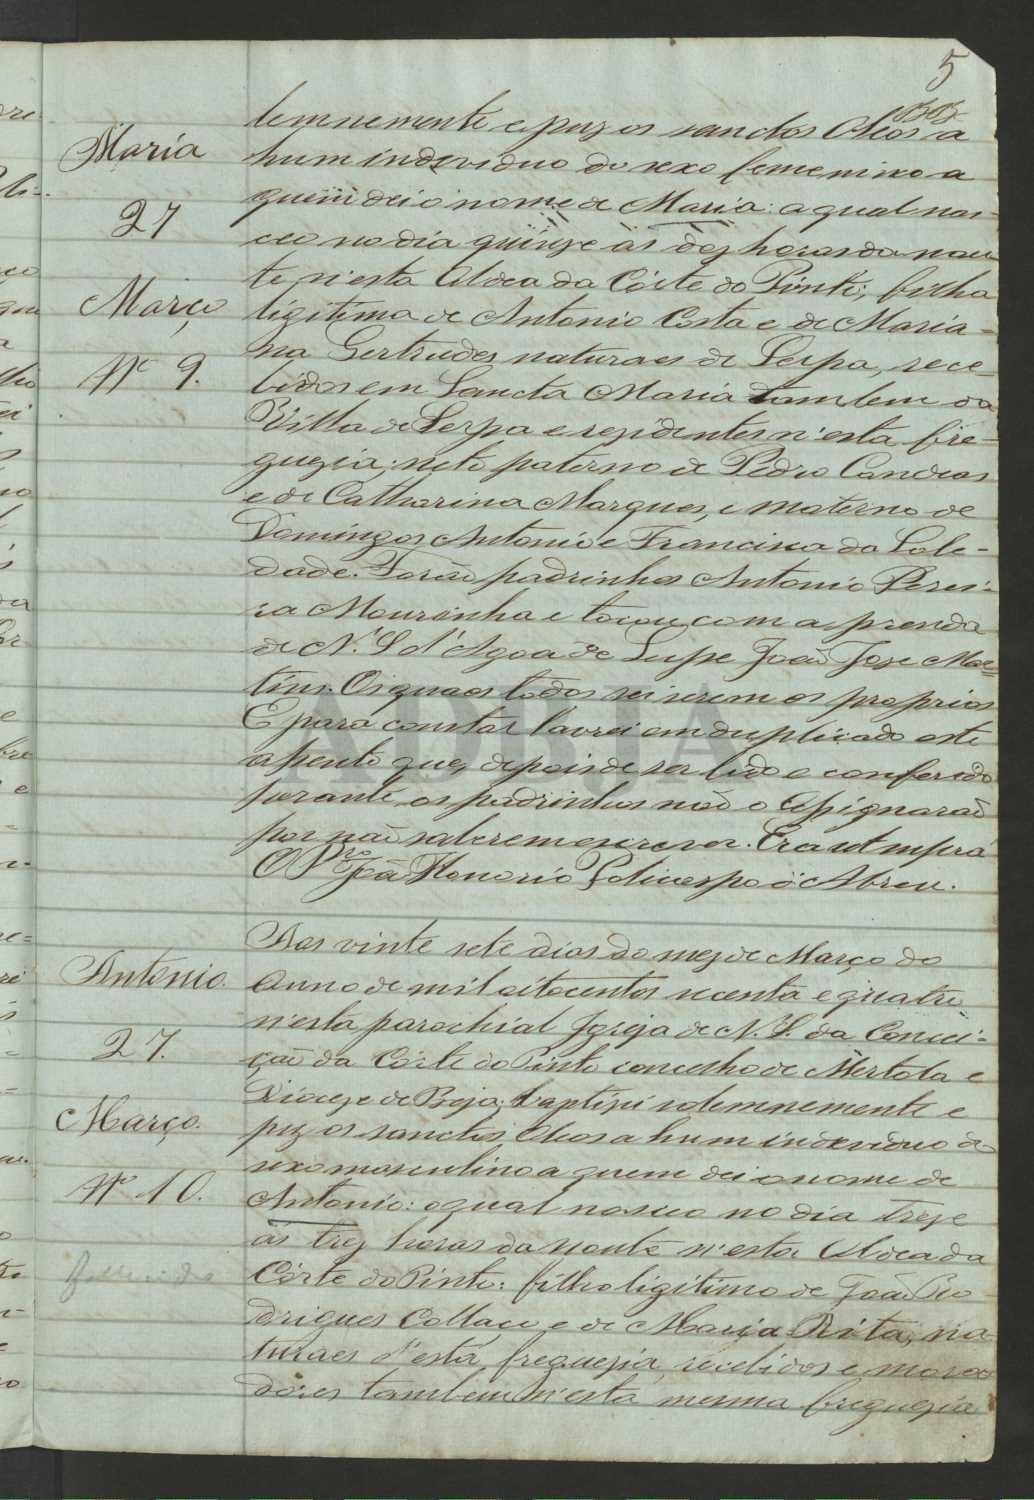 5
Maria
27
Março
Nº 9.
lemnemente e puz os sanctos Oleos a
hum individuo do sexo femenino a
quem dei o nome de Maria: a qual nas-
ceo no dia quinze às dez horas da noui
te n'esta Aldea da Côrte do Pinto; filha
ligitima de Antonio Costa e de Maria-
na Gertrudes naturaes de Serpa, rece-
bidos em Sancta Maria tambem da
Villa de Serpa e rezidentes n'esta fre-
guezia; neto paterno de Pedro Candeas
e de Catharina Marques, e materno de
Domingos Antonio e Francisca da Sole-
dade. Forão padrinhos Antonio Perei-
ra Mourinha e tocou com a prenda
de N. S. d'Agoa de Lupe João Jose Mar-
tins. Os quaes todos sei serem os proprios
E para constar lavrei em duplicado este
assento que, depois de ser lido e conferido
perante os padrinhos não o assignarão
por não saberem escrever. Era ut supra
O Pro João Honorio Policarpo d'Abreu.
Antonio.
27.
Março.
Nº 10.
Aos vinte sete dias do mez de Março do
Anno de mil oitocentos secenta e quatro
n'esta parochial Igreja de N. S. da Concei-
ção da Côrte do Pinto concelho de Mertola e
Dioceze de Beja; baptizei solemnemente e
puz os sanctos Oleos a hum individuo do
sexo masculino a quem dei o nome de
Antonio: o qual nasceo no dia treze
ás trez horas da noute n'esta Aldea da
Côrte do Pinto: filho ligitimo de João Ro-
drigues Collaço e de Maria Rita, na-
turaes d'esta freguezia, recebidos e mora-
dores tambem n'esta mesma freguezia
ADBJA